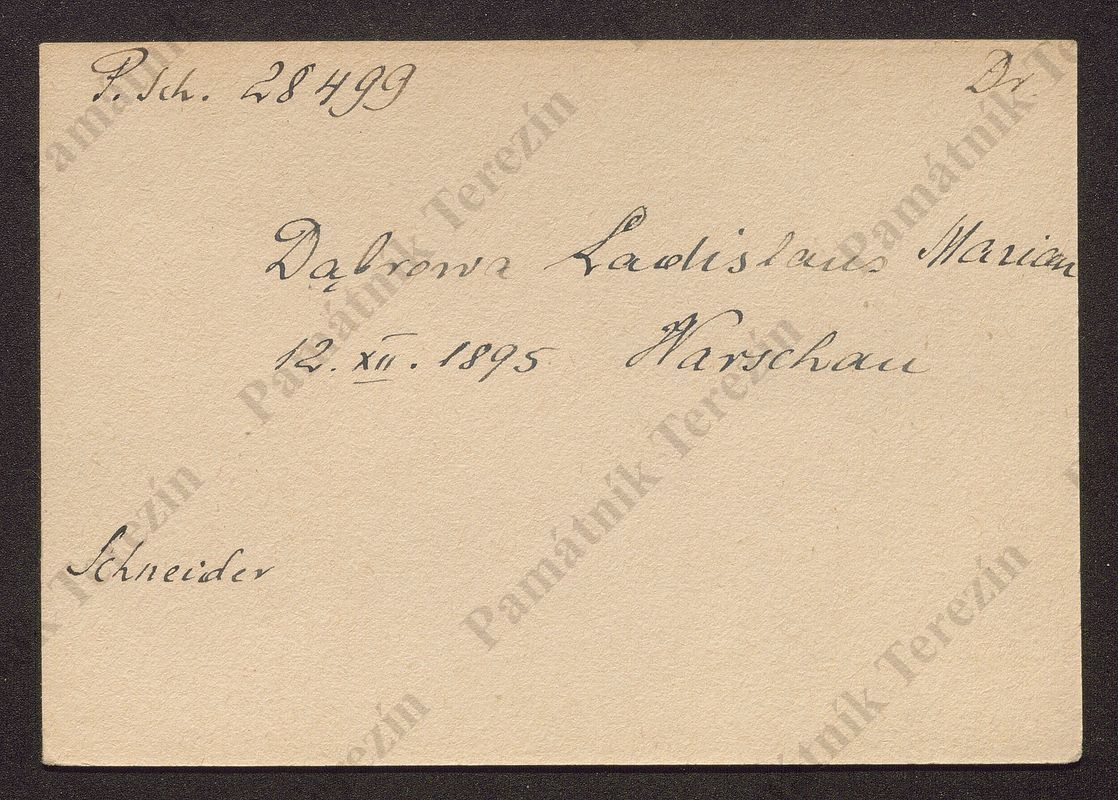 P. Sch. 28499 Dr.
Dąbrowa Ladislaus Marian
12. XII. 1895 Warschau
Schneider
Památník Terezín